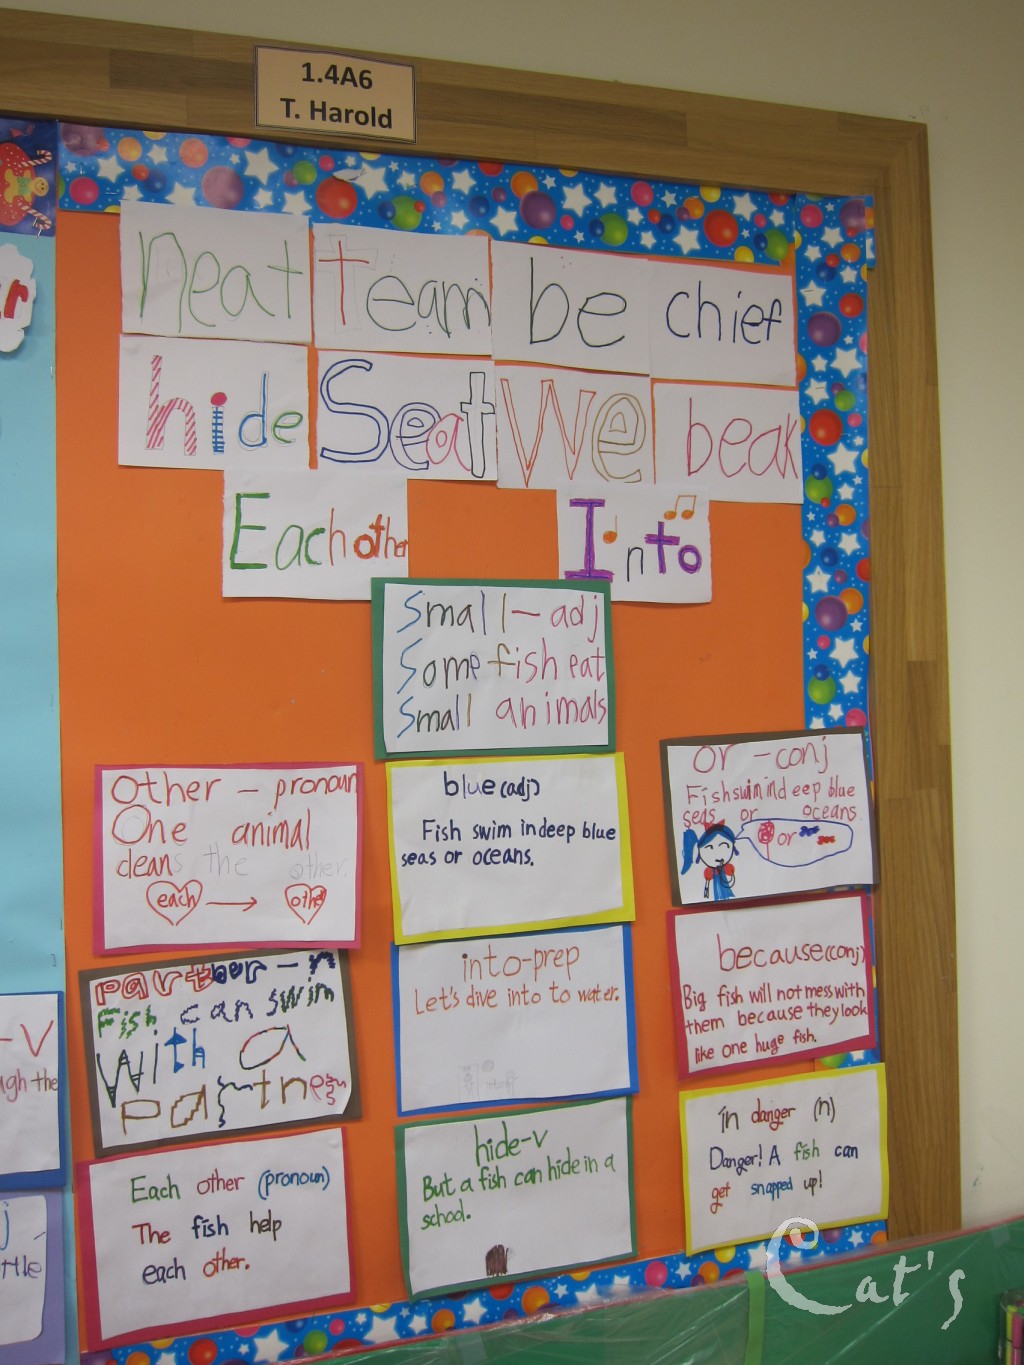 1.4A6
T. Harold
neat team be chief
hide Seat We beak
Each other Into
Small - adj
Some fish eat
Small animals
Other - pronoun
One animal
cleans the other.
each → other
blue (adj)
Fish swim in deep blue
seas or oceans.
or - conj
Fish swim in deep blue
seas or oceans.
or
partber - n
Fish can swim
With a
partner
into - prep
Let's dive into to water.
because (conj)
Big fish will not mess with
them because they look
like one huge fish.
Each other (pronoun)
The fish help
each other.
hide - v
But a fish can hide in a
school.
in danger (n)
Danger! A fish can
get snapped up!
- v
the
Cat's